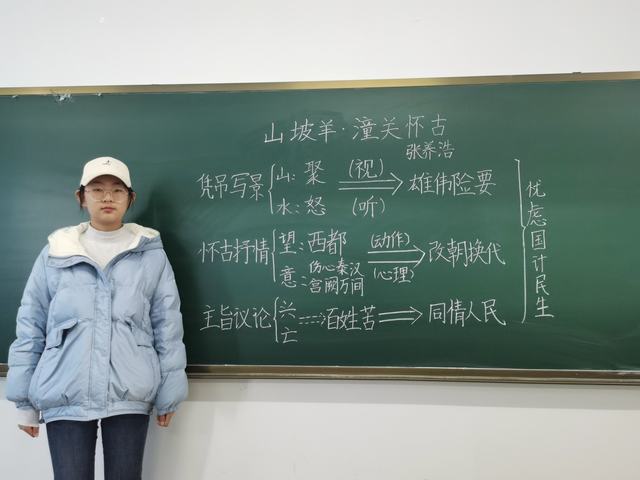 山坡羊·潼关怀古
张养浩
凭吊写景 山:聚 (视) 雄伟险要
水:怒 (听)
怀古抒情 望:西都 (动作) 改朝换代
意:伤心秦汉 (心理)
宫阙万间
主旨议论 兴 百姓苦 同情人民
亡
忧虑国计民生